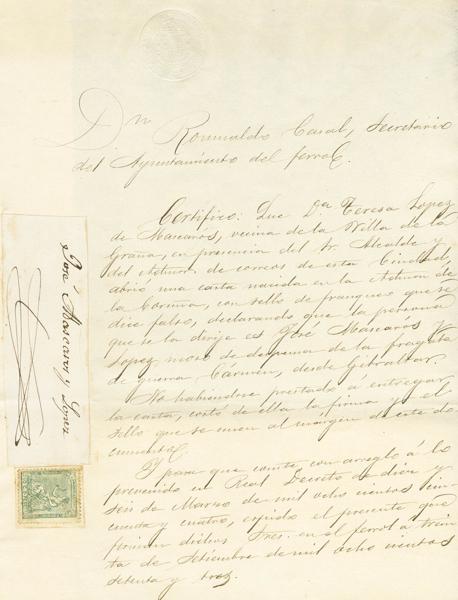 Dn Romualdo Casal, Secretario
del Ayuntamiento del ferrol.
Certifico: Que Da Teresa Lopez
de Mascarós, vecina de la Villa de la
Graña, en presencia del Sr Alcalde y
del de correos de esta Ciudad,
abrió una carta nacida en la
la Coruña, con sello de franqueo que se
dice falso, declarando que la persona
que se la dirije es José Mascaros y
Lopez, mozo de despensa de la fragata
de guerra Cármen, desde Gibraltar.
No habiéndose prestado a entregar
la carta, cortó de ella la firma y el
sello que se unen al margen de este do
cumento.
Y para que conste, con arreglo á lo
prevenido en Real Decreto de diez y
seis de Marzo de mil ocho cientos cin
cuenta y cuatro, expido el presente que
firman dichos Sres. en el ferrol á trein
ta de Setiembre de mil ocho cientos
setenta y tres.
José Mascaros y Lopez